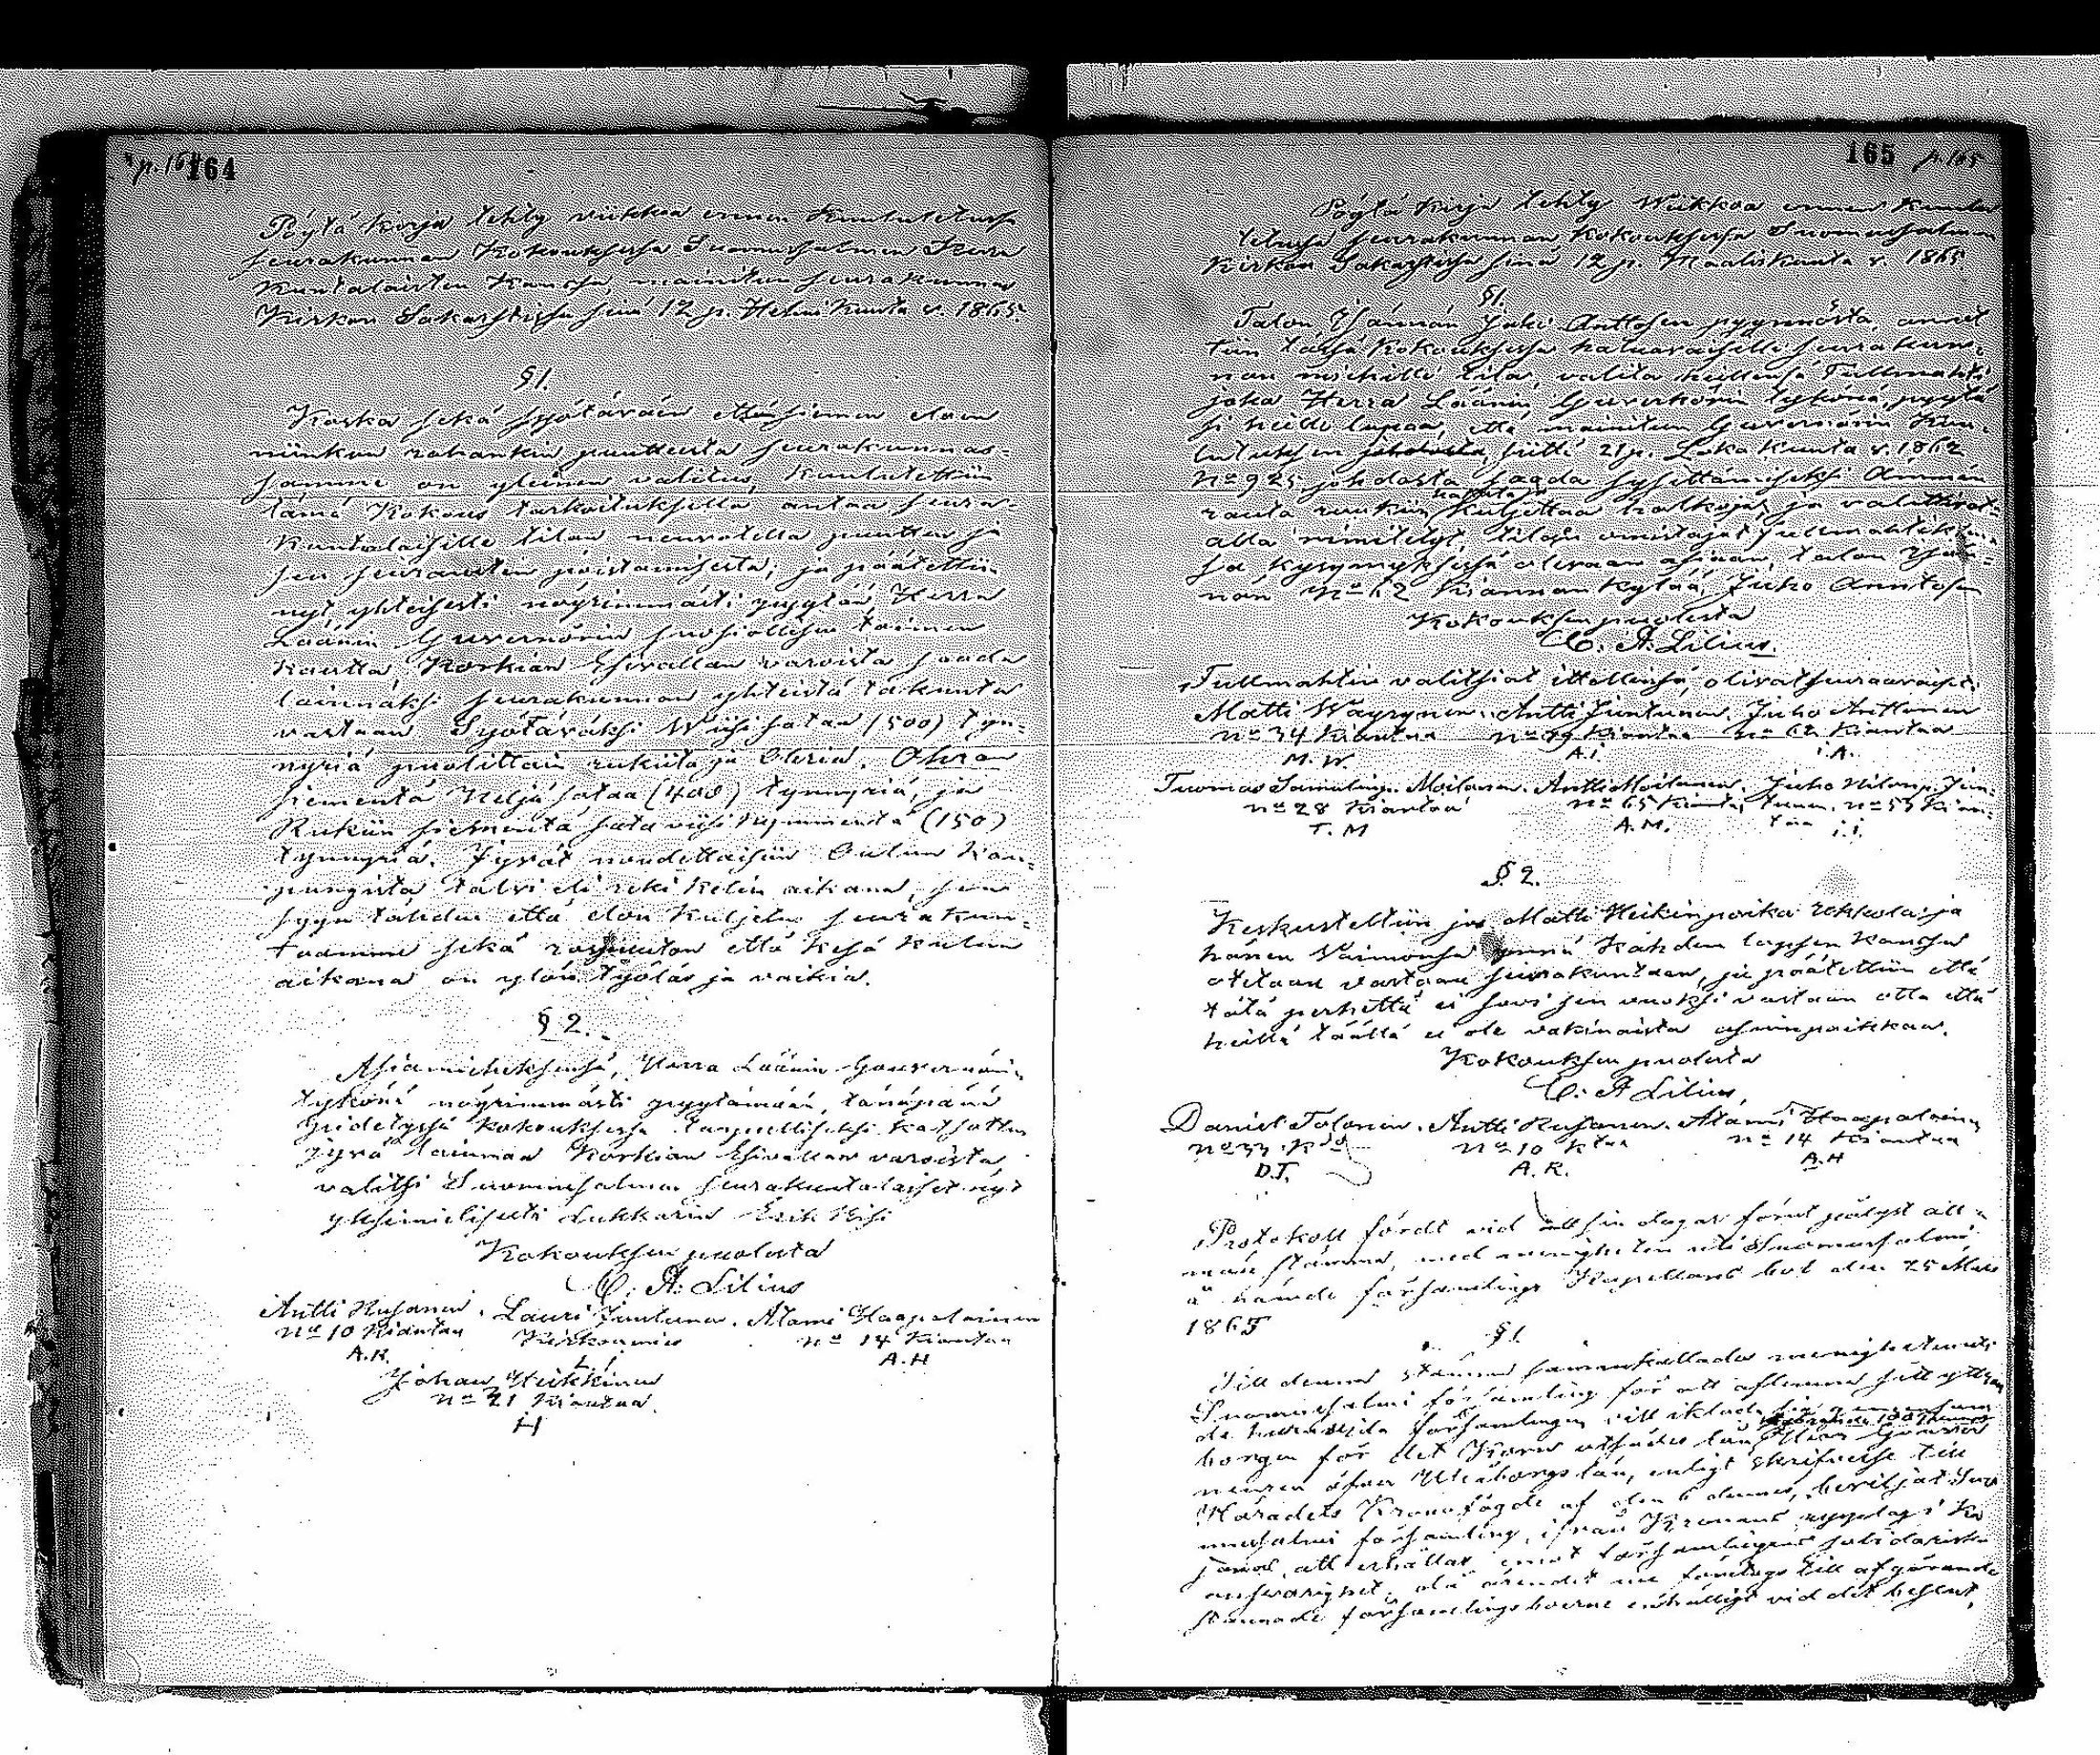 164
Pöytä kirja tehty viikkoa ennen Kuulutetussa
seurakunnan Kokouksessa Suomussalmen Seura
kuntalaisten kanssa, mainitun seurakunnan
Kirkon Sakastissa sinä 12 p. Helmi Kuuta v. 1865.
§ 1.
Koska sekä syötävän että siemen elon
niinkun rahankin puutteesta seurakunnas-
samme on yleinen valitus, Kuulutettiin
tämä Kokous tarkoituksella antaa seura-
kuntalaisille tilan neuvotella puutten ja
sen seurausten poistamisesta; ja päätettiin
nyt yhteisesti nöyrimmästi pyytää, Herra
Läänin Guvernörin suosiollisen toimen
kautta, Korkian Esivallan varoista saada
lainnaksi seurakunnan yhteistä takuuta
vastaan Syötäväksi Wiisisataa (500) tyn-
nyriä puolittain rukiita ja Ohria, Ohran
siementä Neljä sataa (400) tynnyriä, ja
Rukiin siementä sata viisi kymmentä (150)
tynnyriä. Jyvät noudettaisiin Oulun Kau-
pungista talvi eli reki kelin aikana, sen
syyn tähden että elon kuljetus seurakun-
taamme sekä että kesä kulun
aikana on ylön työläs ja vaikia.
§ 2.
Asiamieheksensä, Herra Läänin Gouvernörin
tykönä nöyrimmästi pyytämään, tänäpänä
pidetyssä kokouksessa tarpeelliseksi katsottua
jyvä lainnaa Korkian Esivallan varoista,
valitsi Suomussalmen seurakuntalaiset nyt
yksimielisesti Lukkarin Erik
Kokouksen puolesta
C. A. Lilius
Antti Kusanen. Lauri Juntunen. Atami Haapalainen
No 10 Kiantaa Kirkonmies No 14 Kiantaa
A.K. L.I. A.H
Johan Heikkinen
No 21 Kiantaa.
I H
165 p. 165
Pöytä Kirja tehty Wiikkoa ennen Kuulu
tetussa seurakunnan Kokouksessa Suomussalmen
Kirkon Sakastissa sinä 12 p. Maalis Kuuta v. 1865.
§ 1.
Talon Isännän Juho Anttosen pyynnöstä, annet
tiin tässä Kokouksessa haluavaisille seurakun-
nan miehille tila, valita heillensä Fullmahti
joka Herra Läänin Guvernörin tykönä, pyytä
si heille lupaa, että mainitun Guvernörin Kuu-
lutuksen johdosta, siittä 21 p. Loka Kuuta v. 1862
No 925 johdosta saada sysittämiseksi Ämmän
rauta ruukiin kuljettaa halkoja, ja valittivat
alla nimitetyt, tilain omistajat fullmahtiksensa
sa kysymyksessä olevaan asiaan, talon Isän-
nän No 62 Kiannan Kylää, Juho Anntosen
Kokouksen puolesta
C. A. Lilius.
Fullmahtin valitsiat ittellensä, olivat seuraavaiset:
Matti Wäyrynen. Antti Juntunen. Juho Anttonen
No 34 Kiantaa No 49 Kiantaa No 62 Kiantaa
M. W. A.I. I.A.
Tuomas Moilanen. Antti Moilanen. Juho Jun-
No 28 Kiantaa No 65 tunen. No 57 Kian-
T. M A.M. taa I.I.
§ 2.
Keskusteltiin jos Matti Heikinpoika ja
hänen Vaimonsa ynnä kahden lapsen kanssa
otetaan vastaan seurakuntaan, ja päätettiin että
tätä perhettä ei sovi sen vuoksi vastaan otta että
heillä täällä ei ole vakinaista asuinpaikkaa.
Kokouksen puolesta
C. A Lilius,
Daniel Tolonen. Antti Kusanen. Atami Haapalainen
No 33 No 10 Ktaa No 14 Kiantaa
D.T. A.K. A.H
Protokoll fördt vid dagar förut pålyst all-
män stämma, med menigheten uti Suomussalmi
å nämde församlings Kapellans bol den 25 Mars
1865
§ 1.
Till denna stämma sammankallades menigheten uti
Suomussalmi församling för att aflemna sitt yttran
de huruvida församlingen vill ikläda sig gemensam
borgen för det Korns utsädes lån, Herr Gouver
neuren öfver Uleåborgs län, enligt skrifvelse till
Häradets Kronofogde af den 6 dennes, beviljat Suo
mussalmi församling, ifrån Kronans upplag i Ka
jana, att erhållas emot församlingens solidariska
ansvarighet; då ärendet nu företogs till afgörande
stannade församlingsboerne enhälligt vid det beslut,